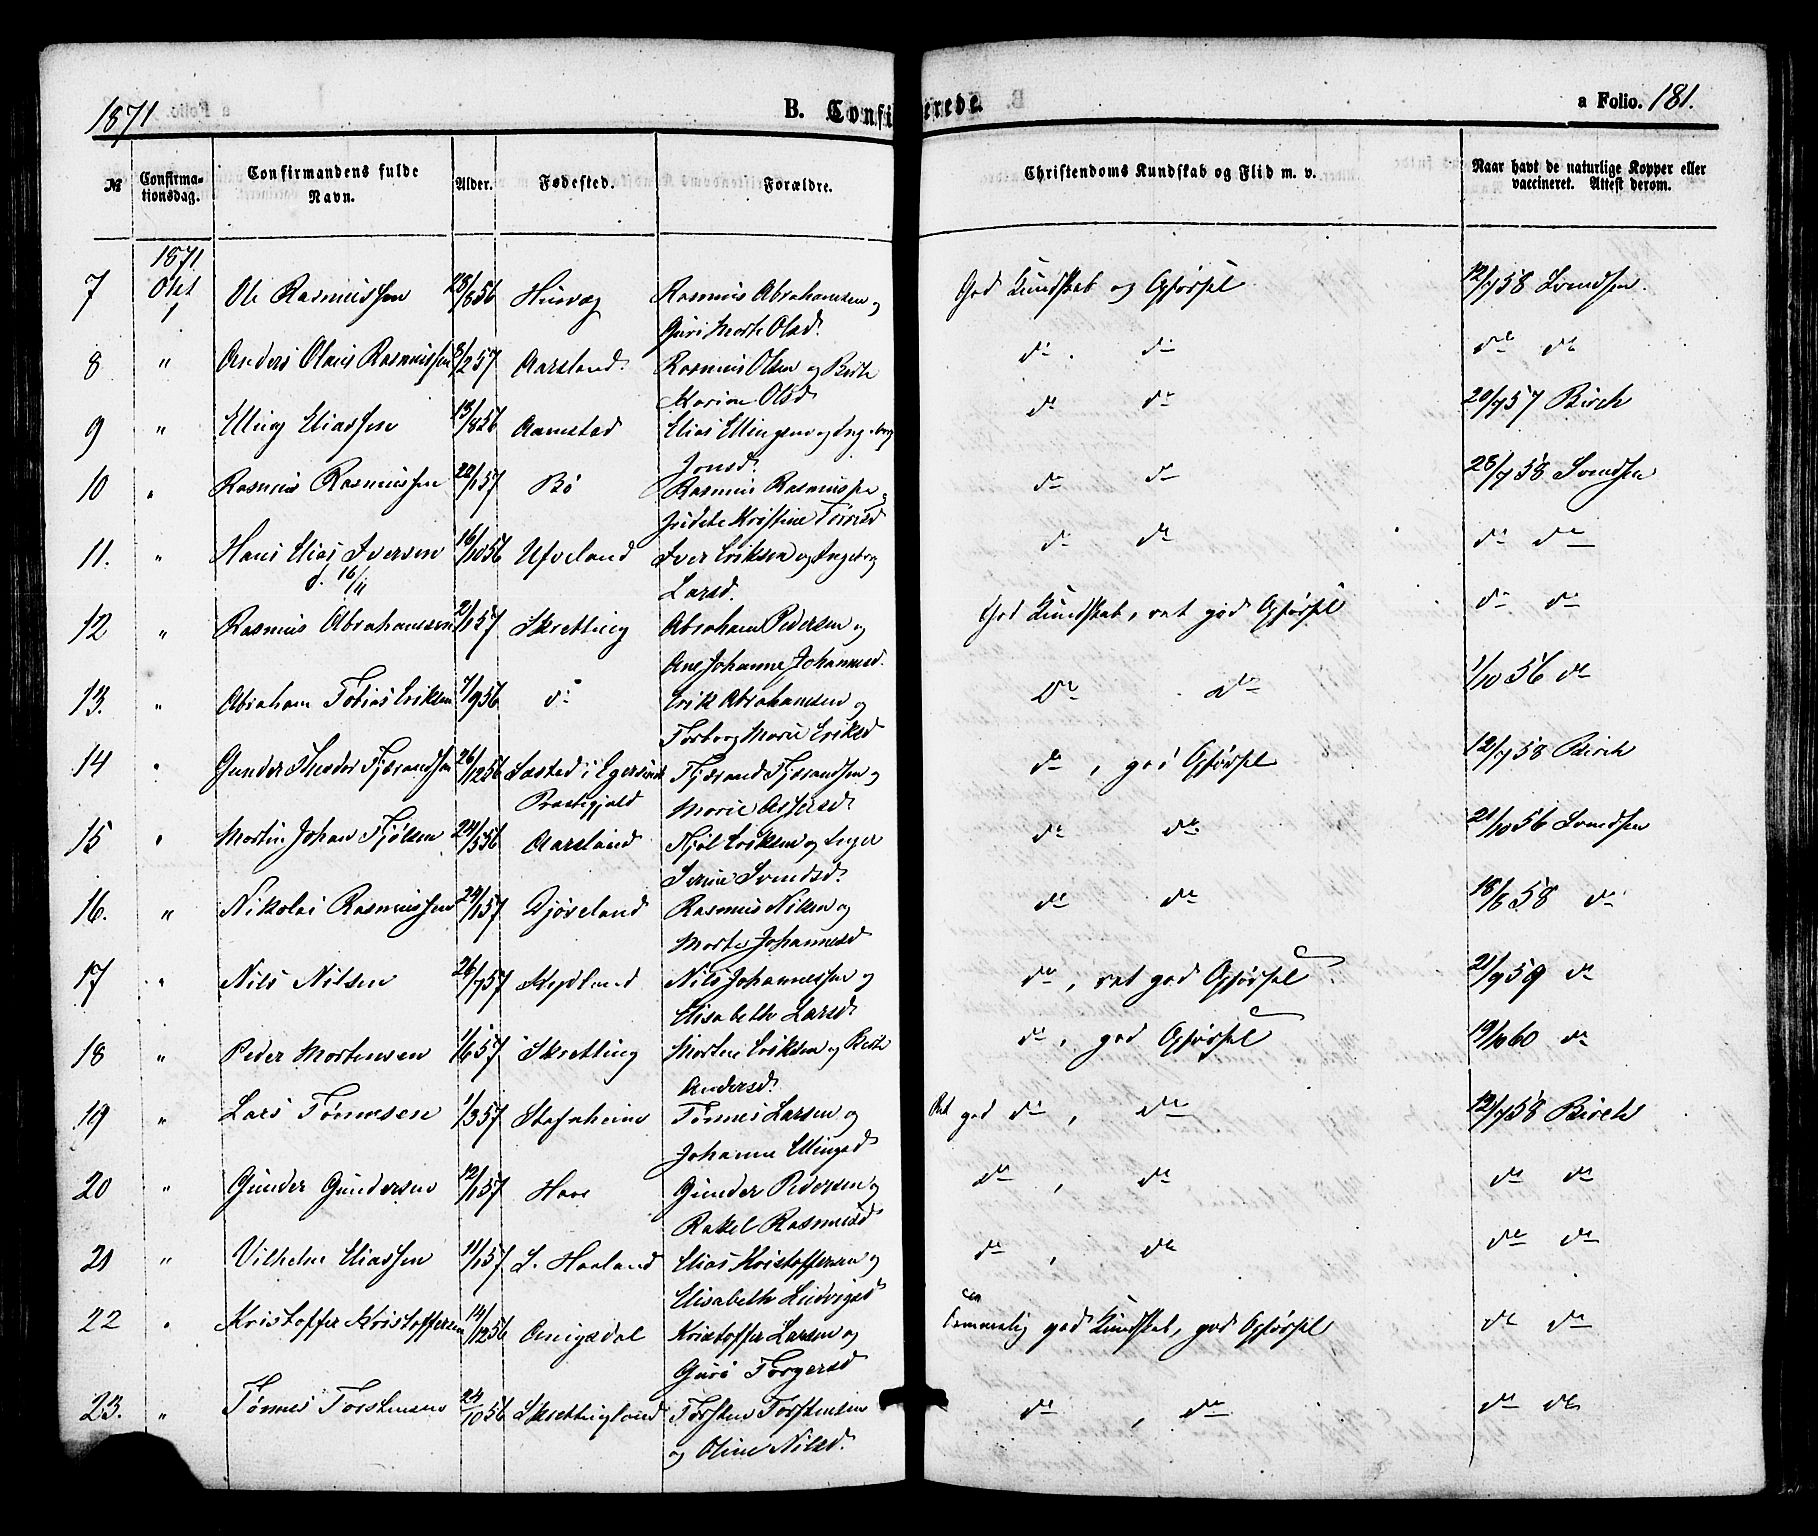 1871 B. Confi erede. a Folio. 181.
№ Confirma-tionsdag. Confirmandens fulde Navn. Alder. Fødested. Forældre. Christendoms Kundskab og Flid m. v. Naar havt de naturlige Kopper eller vaccineret. Attest derom.
1871
7 Okt 1 Ole Rasmussen 28/8 56 Husvæg Rasmus Abrahamsen og God Kundskab og Opførsel 12/7 58 Svendsen.
Guri Marte Olsd.
8 " Anders Olaus Rasmussen 8/2 57 Aarsland. Rasmus Olsen og Berte do. do do do
Karine Olsd
9 " Elling Eliassen 13/8 56 Aamstad Elias Ellingsen og Ingeborg do do 20/7 57 Birch
Jonsd.
10 " Rasmus Rasmussen 22/1 57 Bø Rasmus Rasmussen og do do 28/7 58 Svendsen
Kristine
11. " Hans Elias Iversen 16/10 56 Ueland Iver Eriksen og Ingeborg do do do do
d. 16/11 Larsd.
12 " Rasmus Abrahamsen 2/1 57 Skretting Abraham Pedersen og God Kundskab, ret god Opførsel do do
Ane Johanne Johannesd.
13. " Abraham Tobias Eriksen 7/9 56 do Erik Abrahamsen og Do do 1/10 56 do
Torborg Marie Eriksd
14 " Gunder Theodor Fjærandsen 26/12 56 i Egersunds Fjærand Fjærandsen og do, god Opførsel 12/7 58 Birch
Præstegjeld Marie
15 " Martin Johan Tjølsen 24/5 56 Aarsland Tjøl Eriksen og Inger do do. 21/10 56 Svendsen
Serine Svendsd.
16. " Nikolai Rasmussen 24/1 57 Djøveland Rasmus Nilsen og do do 18/6 58 do
Marte Johannesd
17 " Nils Nilsen 26/7 57 Nils Johannessen og do, ret god Opførsel. 21/9 59 do
Elisabeth Larsd
18 " Peder Mortensen 1/6 57 Skretting Morten Eriksen og Berte do, god Opførsel 19/10 60 do
Andersd.
19 " Lars Tønnesen 1/3 57 Stafnheim Tønnes Larsen og Ret god do, do 12/7 58 Birch
Johanne Ellingsd
20 " Gunder Gundersen 12/1 57 Haar Gunder Pedersen og do, do do do
Rakel Rasmusd
21 " Vilhelm Eliassen 11/1 57 S. Haaland Elias Kristoffersen og do, do do do
Elisabeth Ludvigsd
22 " Kristoffer Kristoffersen 14/12 56 Ørnigsdal Kristoffer Larsen og Temmelig god Kundskab, god Opførsel do do
Guro Torgersd
23. " Tønnes Torstensen 24/10 56 Skrettingland Torsten Torstensen do, do do do
og Oline Nilsd.